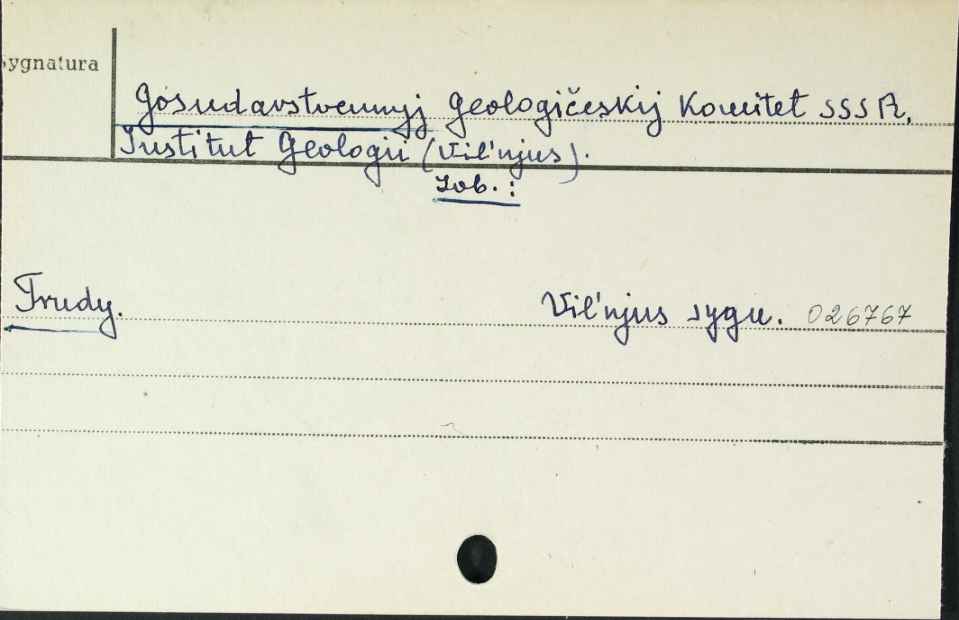 Sygnatura
Gosudarstvennyj Geologičeskij Komitet SSSR,
Institut Geologii (Vil'njus).
Zob.:
Trudy. Vil'njus sygn. 026767